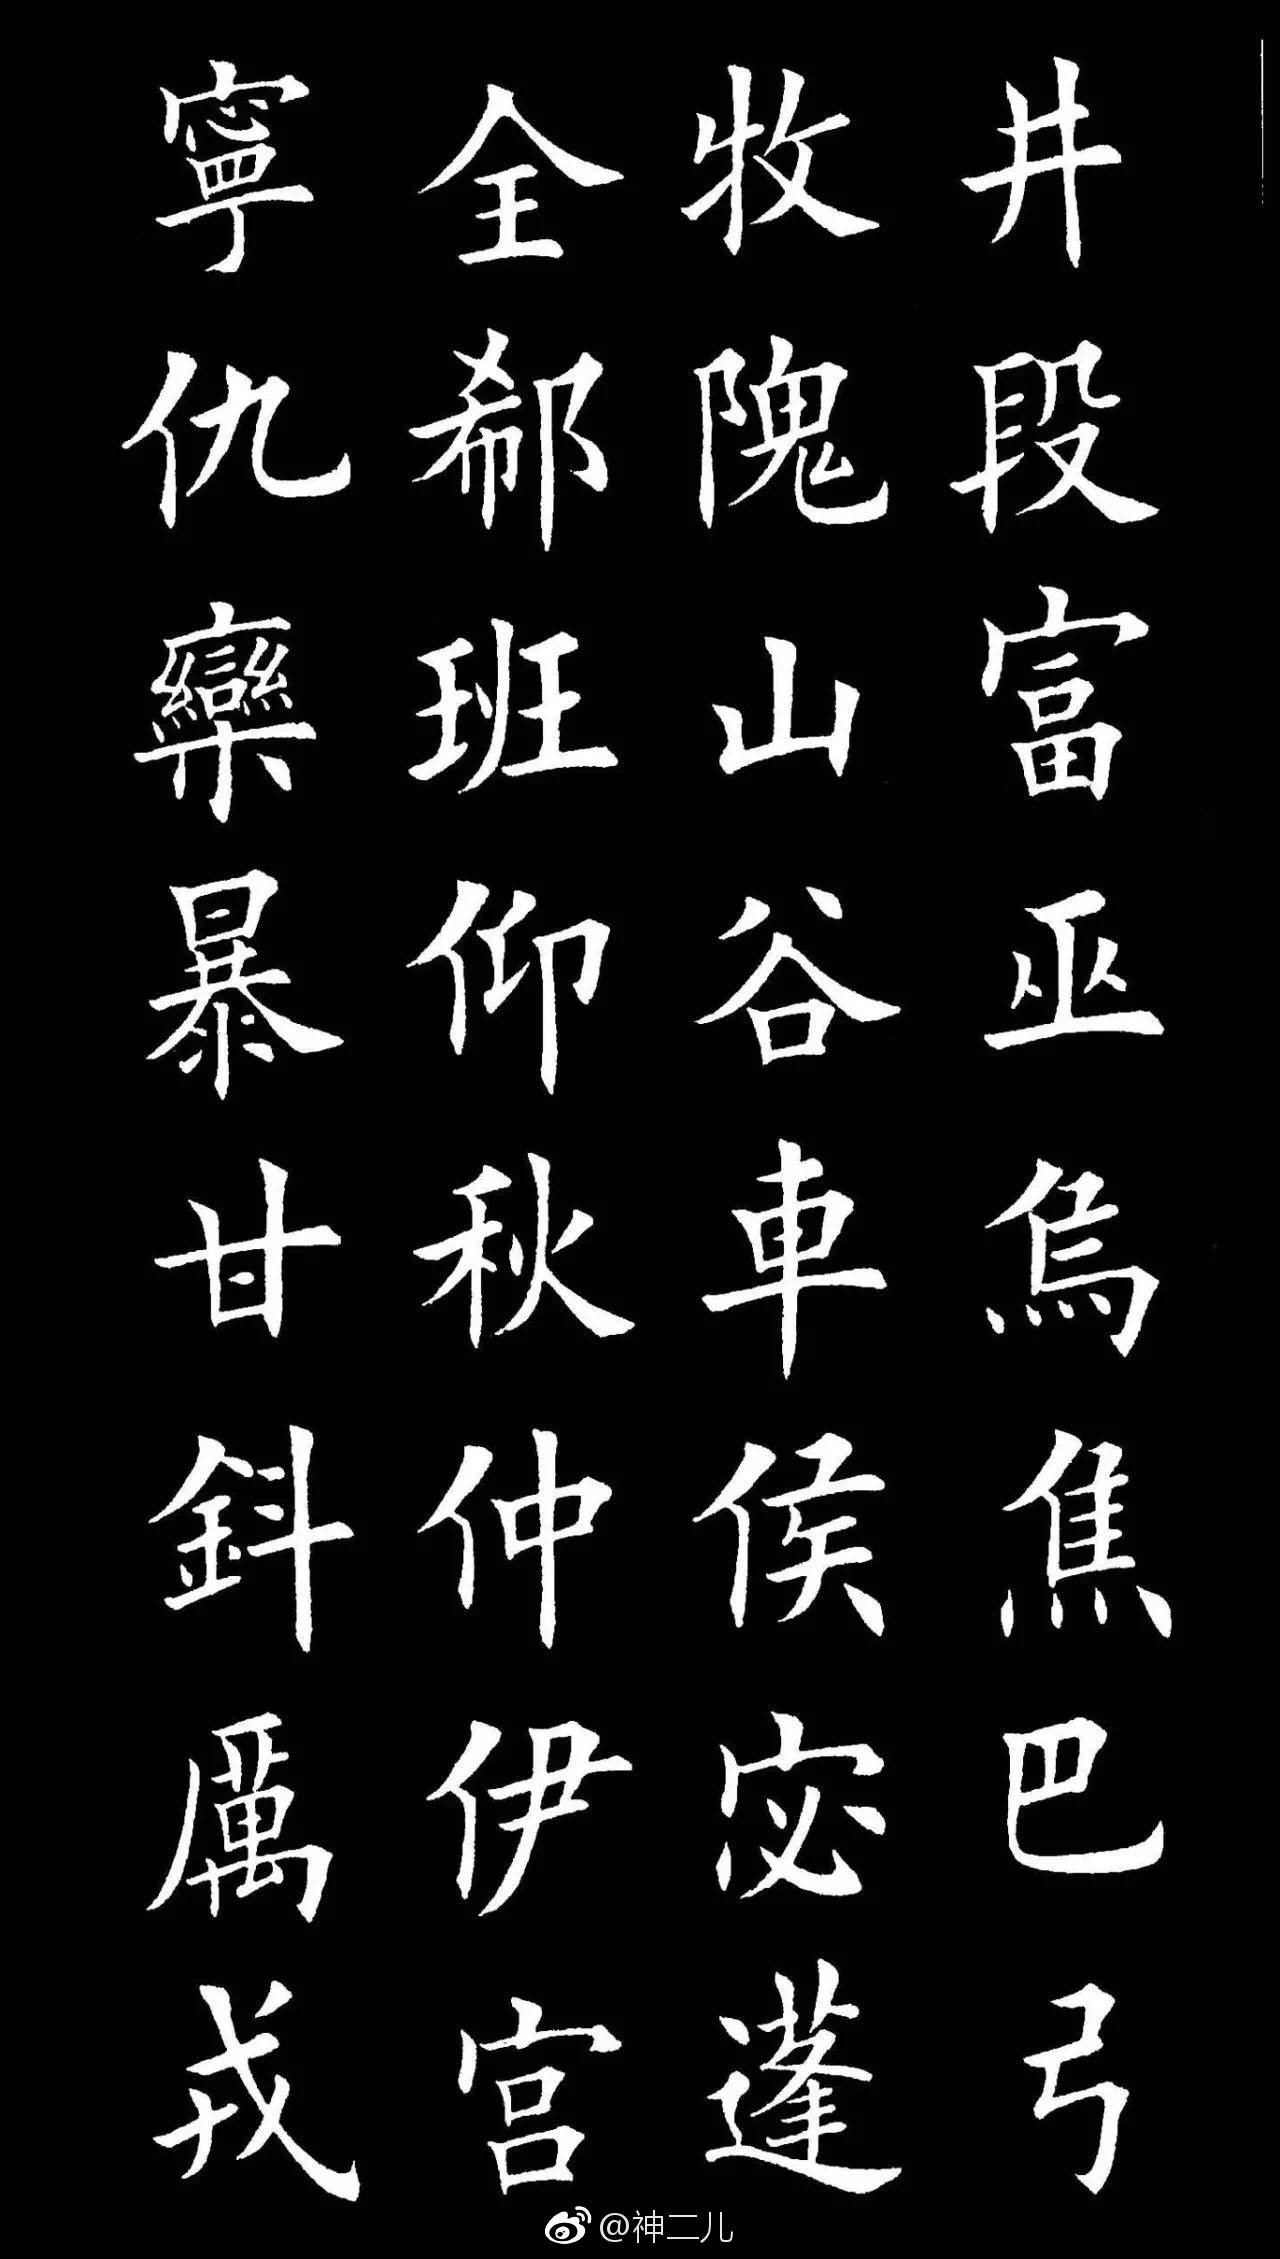 井段富巫烏焦巴弓
牧隗山谷車侯宓蓬
全郗班仰秋仲伊宫
寧仇欒暴甘鈄厲戎
@神二儿